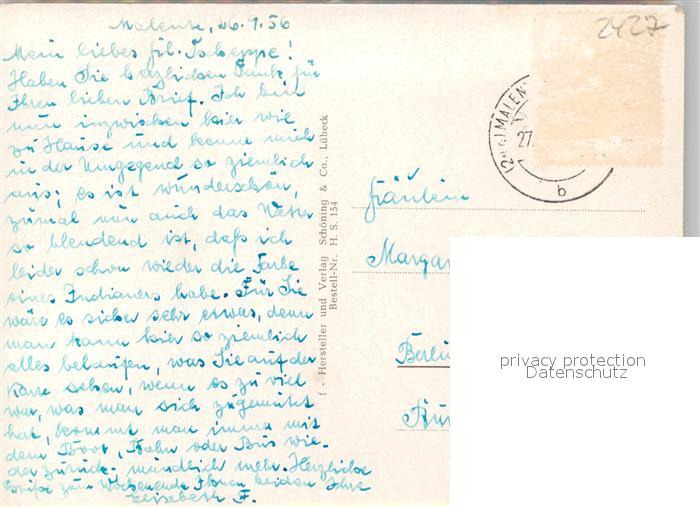 Malente, 26.9.56
Mein liebes Frl. Tscheppe!
Haben Sie herzlichen Dank für
Ihren lieben Brief. Ich bin
nun inzwischen hier wie
zu Hause und kenne mich
in der Umgegend so ziemlich
aus; es ist wunderschön,
zumal nun auch das Wetter
so blendend ist, daß ich
leider schon wieder die Farbe
eines Indianers habe. Für Sie
wäre es sicher sehr etwas, denn
man kann hier so ziemlich
alles belaufen, was Sie auf der
Karte sehen, wenn es zu viel
war, was man sich zugemutet
hat, kommt man immer mit
dem Boot, Bahn oder Bus wie-
der zurück. - mündlich mehr. Herzliche
Grüße zum Wochenende Ihnen beiden Ihre
Elisabeth F.
f - Hersteller und Verlag Schöning & Co., Lübeck
Bestell-Nr. H. S. 154
2427
MALEN
27.
b
Fräulein
Margar
Berlin
privacy protection
Datenschutz